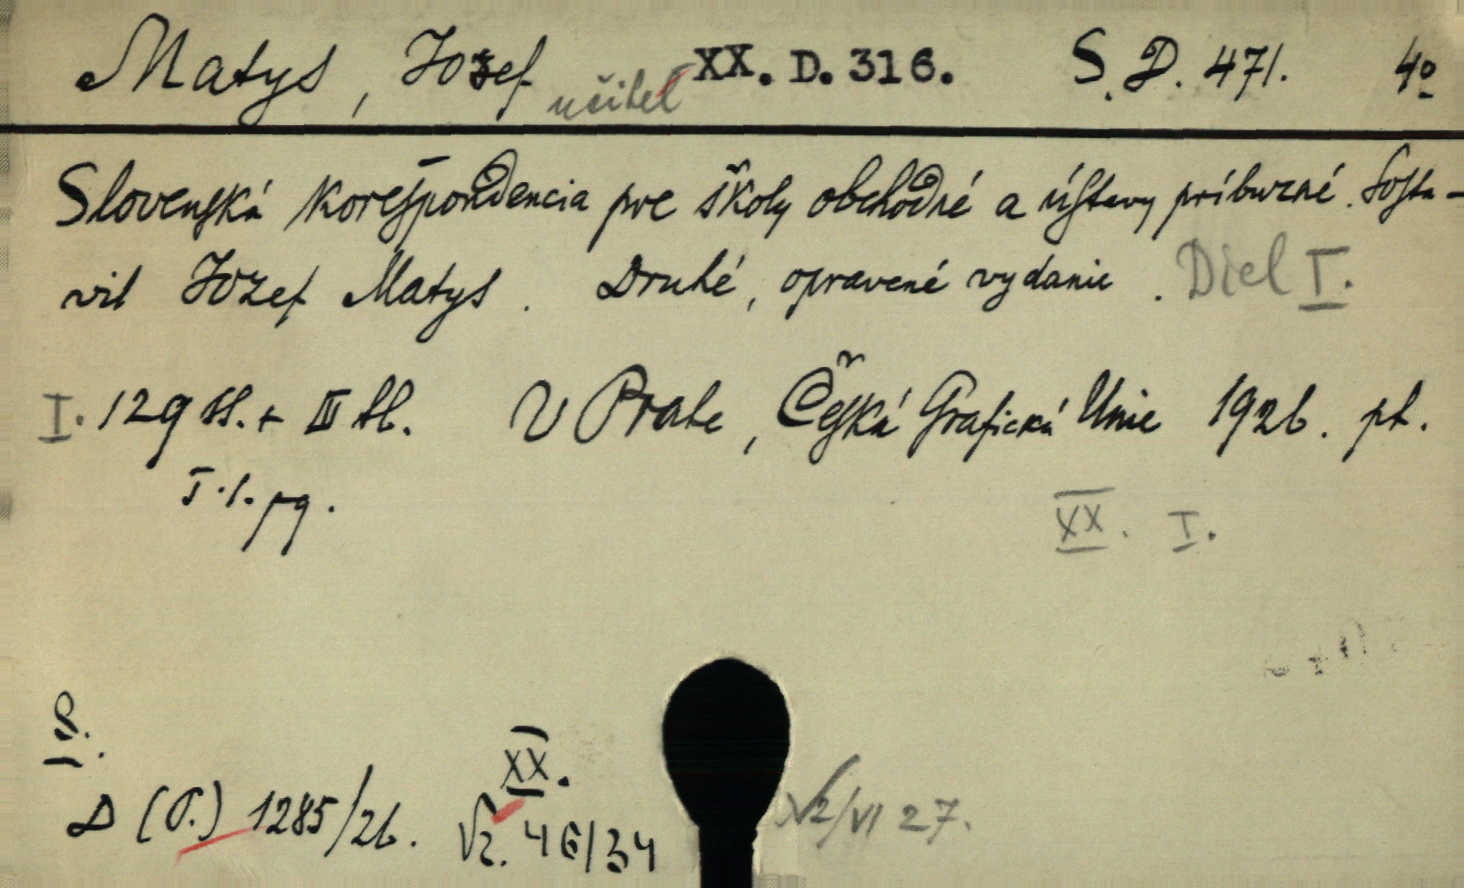 Matys, Jozef učitel XX. D. 316. S. D. 471. 4º
Slovenská korešpondencia pre školy obchodné a ústavy príbuzné. Sosta-
vil Jozef Matys. Druhé, opravené vydanie. Diel I.
I. 129 ss. + III sl. V Prahe, Česká Grafická Unie 1926. pt.
I. 1. pg.
XX. I.
S.
XX.
D (O.) 1285/26. Vz. 46/34 Vz/VI 27.